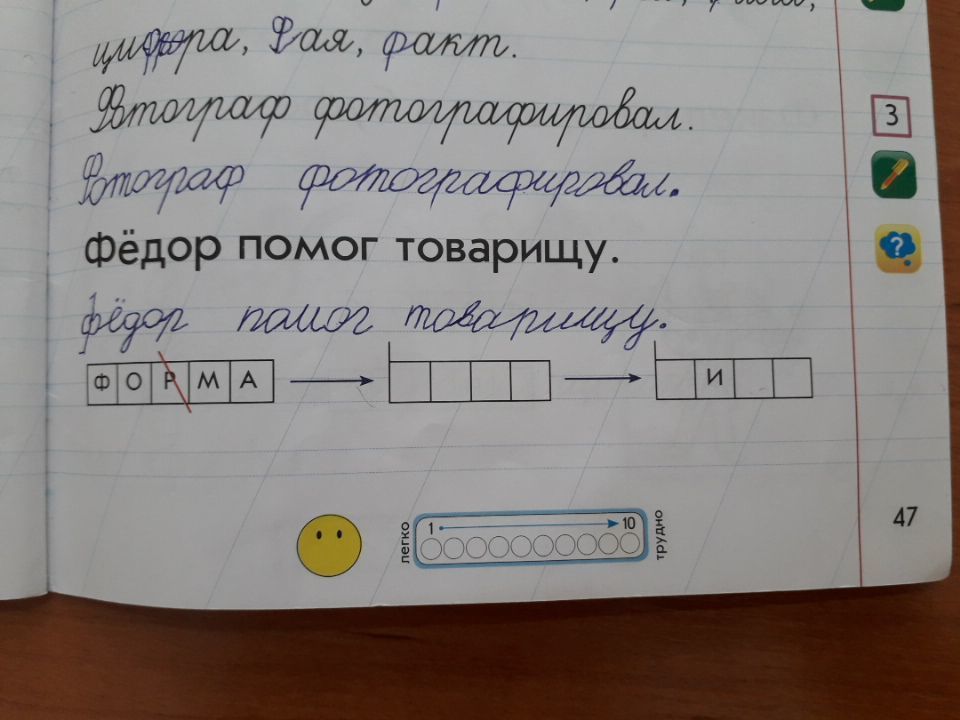 цифра, Фая, факт.
Фотограф фотографировал.
3
Фотограф фотографировал.
Фёдор помог товарищу.
?
Фёдор помог товарищу.
ФОРМА И
легко 1 10 трудно
47